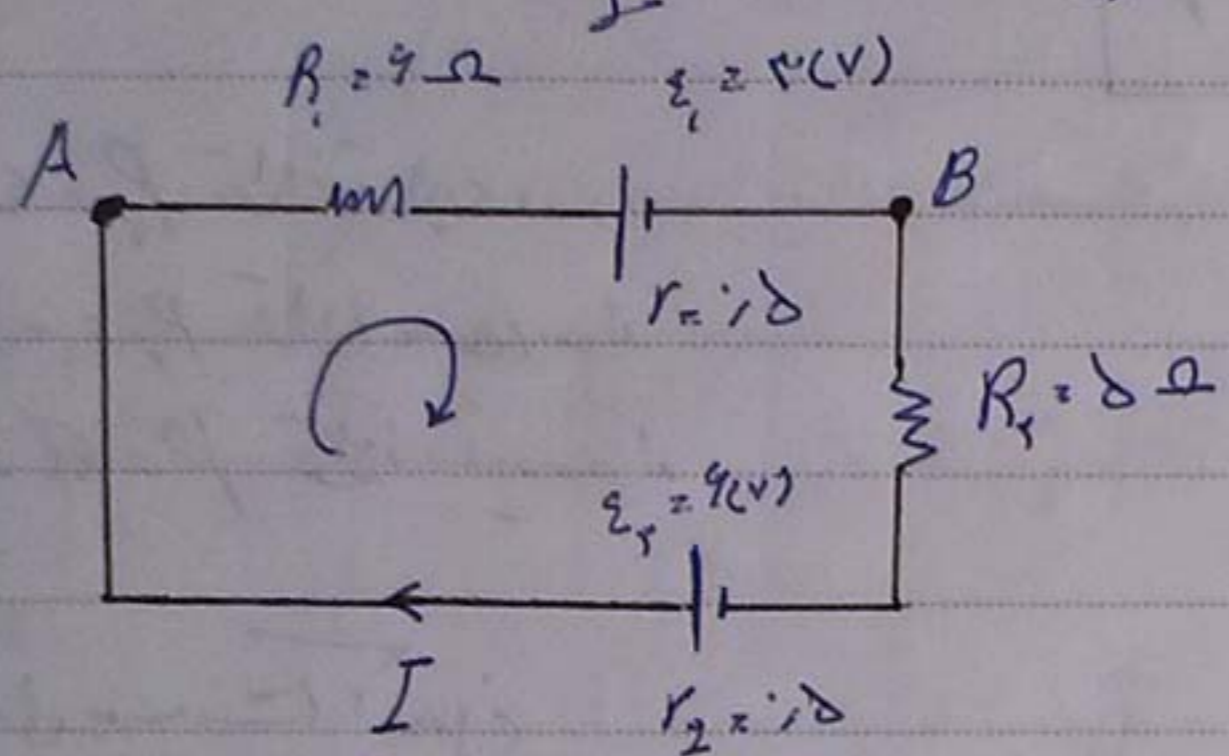 R₁ = ۶ Ω ε₁ = ۳(V)
A
B
r = ۰٫۵
R۲ = ۵ Ω
ε۲ = ۶(V)
I
r2 = ۰٫۵